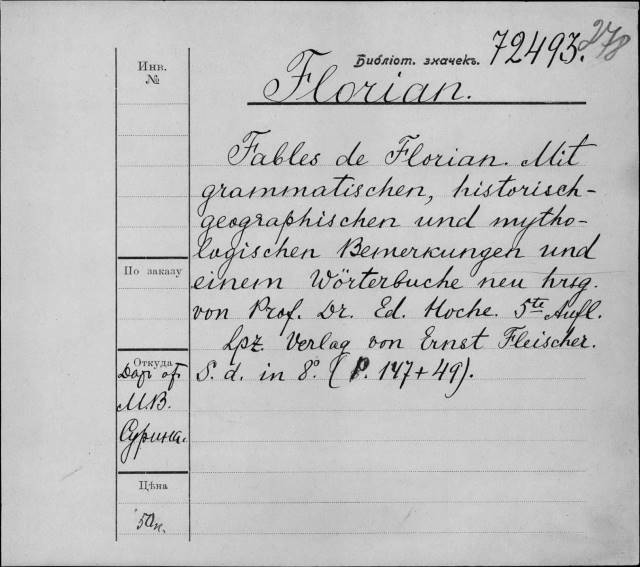 Инв.
№
Библіот. значекъ. 72493.
278
Florian.
Fables de Florian. Mit
grammatischen, historisch-
geographischen und mytho-
logischen Bemerkungen und
einem Wörterbuche neu hrsg.
von Prof. Dr. Ed. Hoche. 5te Aufl.
Lpz. Verlag von Ernst Fleischer.
S. d. in 8º. (P. 147+49).
По заказу
Откуда
Даръ от
М.В.
Сурина.
Цѣна
50к.